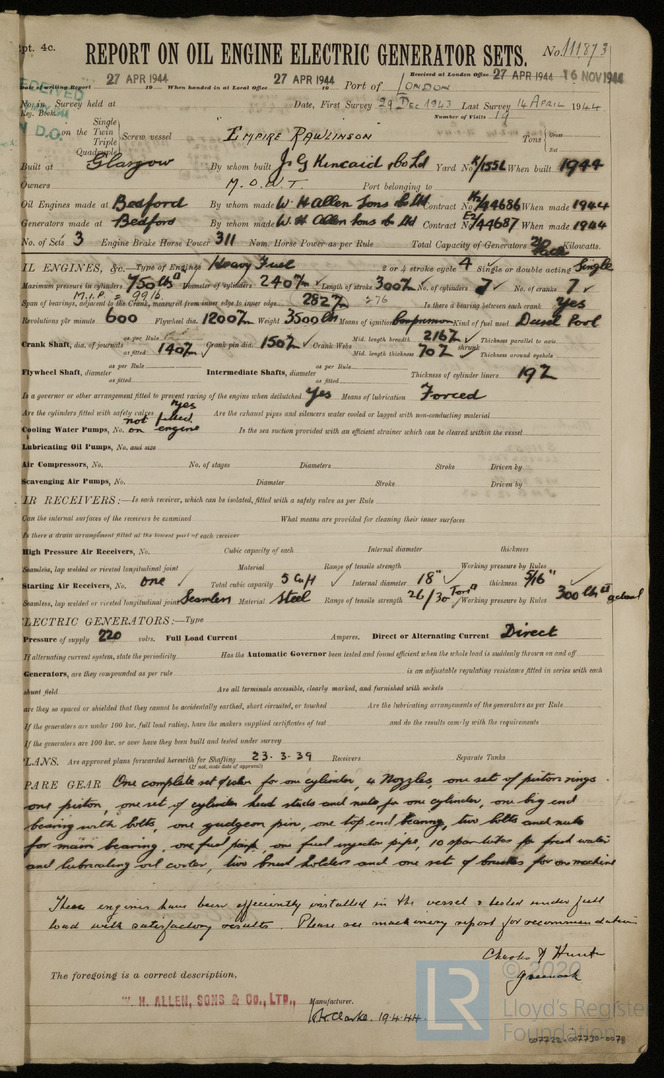 Rpt. 4c.
REPORT ON OIL ENGINE ELECTRIC GENERATOR SETS. No. 111873
RECEIVED
Received at London Office 27 APR 1944 16 NOV 1944
Date of writing Report 27 APR 1944 19 When handed in at Local Office 27 APR 1944 19 Port of LONDON
No. in Survey held at Date, First Survey 29 DEC 1943 Last Survey 14 APRIL 1944
Reg. Book. Number of Visits 19
D.O.
Single
on the Twin Screw vessel "EMPIRE RAWLINSON" Tons Gross
Triple Net
Quadruple
Built at Glasgow By whom built J. G Kincaid & Co Ltd Yard No. K/1552 When built 1944
Owners M.O.W.T. Port belonging to
Oil Engines made at Bedford By whom made W. H Allen Sons & Co Ltd Contract No. K2/44686 When made 1944
Generators made at Bedford By whom made W. H Allen Sons & Co Ltd Contract No. E2/44687 When made 1944
No. of Sets 3 Engine Brake Horse Power 311 Nom. Horse Power as per Rule Total Capacity of Generators Kilowatts.
OIL ENGINES, &c. Type of Engines Heavy Fuel 2 or 4 stroke cycle 4 Single or double acting Single
Maximum pressure in cylinders 750 lbs □" Diameter of cylinders 240 m/m Length of stroke 300 m/m No. of cylinders 7 No. of cranks 7
M.I.P. = 99 lb.
Span of bearings, adjacent to the Crank, measured from inner edge to inner edge 282 m/m 276 Is there a bearing between each crank Yes
Revolutions per minute 600 Flywheel dia. 1200 m/m Weight 3500 lbs Means of ignition Compression Kind of fuel used Diesel Pool
Crank Shaft, dia. of journals as per Rule as fitted 140 m/m Crank pin dia. 150 m/m Crank Webs Mid. length breadth 216 m/m Mid. length thickness 70 m/m shrunk Thickness parallel to axis Thickness around eyehole
Flywheel Shaft, diameter as per Rule as fitted Intermediate Shafts, diameter as per Rule as fitted Thickness of cylinder liners 19 m/m
Is a governor or other arrangement fitted to prevent racing of the engine when declutched Yes Means of lubrication Forced
Are the cylinders fitted with safety valves Yes Are the exhaust pipes and silencers water cooled or lagged with non-conducting material
Cooling Water Pumps, No. not fitted on engine Is the sea suction provided with an efficient strainer which can be cleared within the vessel
Lubricating Oil Pumps, No. and size
Air Compressors, No. No. of stages Diameters Stroke Driven by
Scavenging Air Pumps, No. Diameter Stroke Driven by
AIR RECEIVERS:—Is each receiver, which can be isolated, fitted with a safety valve as per Rule
Can the internal surfaces of the receivers be examined What means are provided for cleaning their inner surfaces
Is there a drain arrangement fitted at the lowest part of each receiver
High Pressure Air Receivers, No. Cubic capacity of each Internal diameter thickness
Seamless, lap welded or riveted longitudinal joint Material Range of tensile strength Working pressure by Rules
Starting Air Receivers, No. one Total cubic capacity 5 Cu ft Internal diameter 18" thickness 5/16"
Seamless, lap welded or riveted longitudinal joint Seamless Material Steel Range of tensile strength 26/30 Tons □" Working pressure by Rules 300 lbs □" actual
ELECTRIC GENERATORS:—Type
Pressure of supply 220 volts. Full Load Current Amperes. Direct or Alternating Current Direct
If alternating current system, state the periodicity Has the Automatic Governor been tested and found efficient when the whole load is suddenly thrown on and off
Generators, are they compounded as per rule is an adjustable regulating resistance fitted in series with each
shunt field Are all terminals accessible, clearly marked, and furnished with sockets
are they so spaced or shielded that they cannot be accidentally earthed, short circuited, or touched Are the lubricating arrangements of the generators as per Rule
If the generators are under 100 kw. full load rating, have the makers supplied certificates of test and do the results comply with the requirements
If the generators are 100 kw. or over have they been built and tested under survey
PLANS. Are approved plans forwarded herewith for Shafting 23.3.39 Receivers Separate Tanks
(If not, state date of approval)
SPARE GEAR One complete set of valves for one cylinder, 4 Nozzles, one set of piston rings
one piston, one set of cylinder head studs and nuts for one cylinder, one big end
bearing with bolts, one gudgeon pin, one top end bearing, two bolts and nuts
for main bearing, one fuel pump, one fuel injector pipe, 10 spare tubes for fresh water
and lubricating oil cooler, two brush holders and one set of brushes for one machine
These engines have been efficiently installed in the vessel & tested under full
load with satisfactory results. Please see machinery report for recommendation
Charles Hunter
Greenock
The foregoing is a correct description,
W. H. ALLEN, SONS & CO., LTD., Manufacturer.
Clarke. 19.4.44.
LR © 2020
Lloyd's Register
Foundation
007722-007730-0078